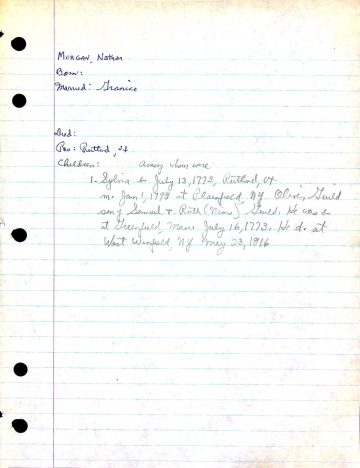 Morgan, Nathan
Born:
Married: Granice
Died:
Res: Rutland, Vt
Children: among whom were
1- Sylvia b July 13, 1773, Rutland, Vt
m. Jan 1, 1798 at Plainfield, NY Olivin Guild
son of Samuel & Ruth (Nims) Guild. He was b
at Greenfield, Mass July 16, 1773. He d. at
West Winfield, NY May 23, 1816